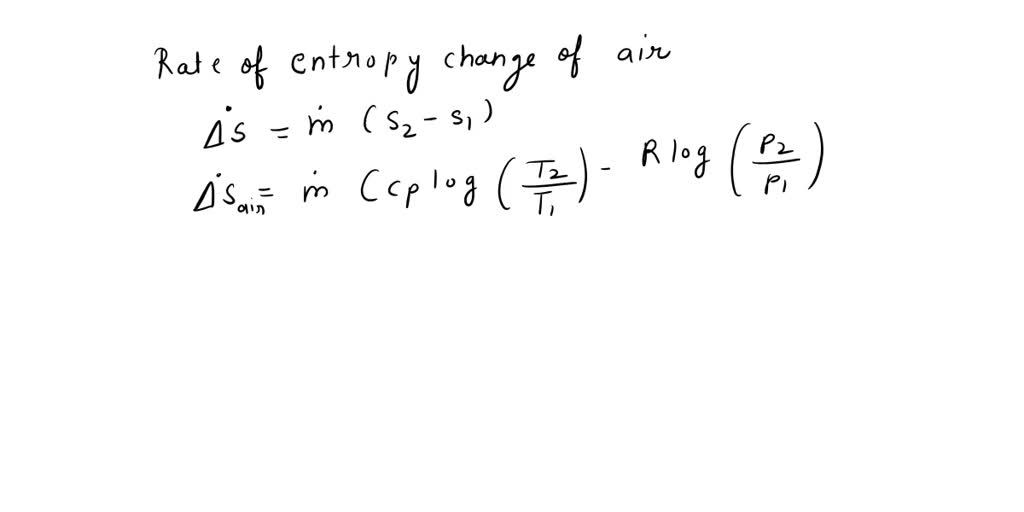 Rate of entropy change of air
Δṡ = ṁ (s₂ - s₁)
Δṡair = ṁ (cp log (T₂/T₁) - R log (P₂/P₁)